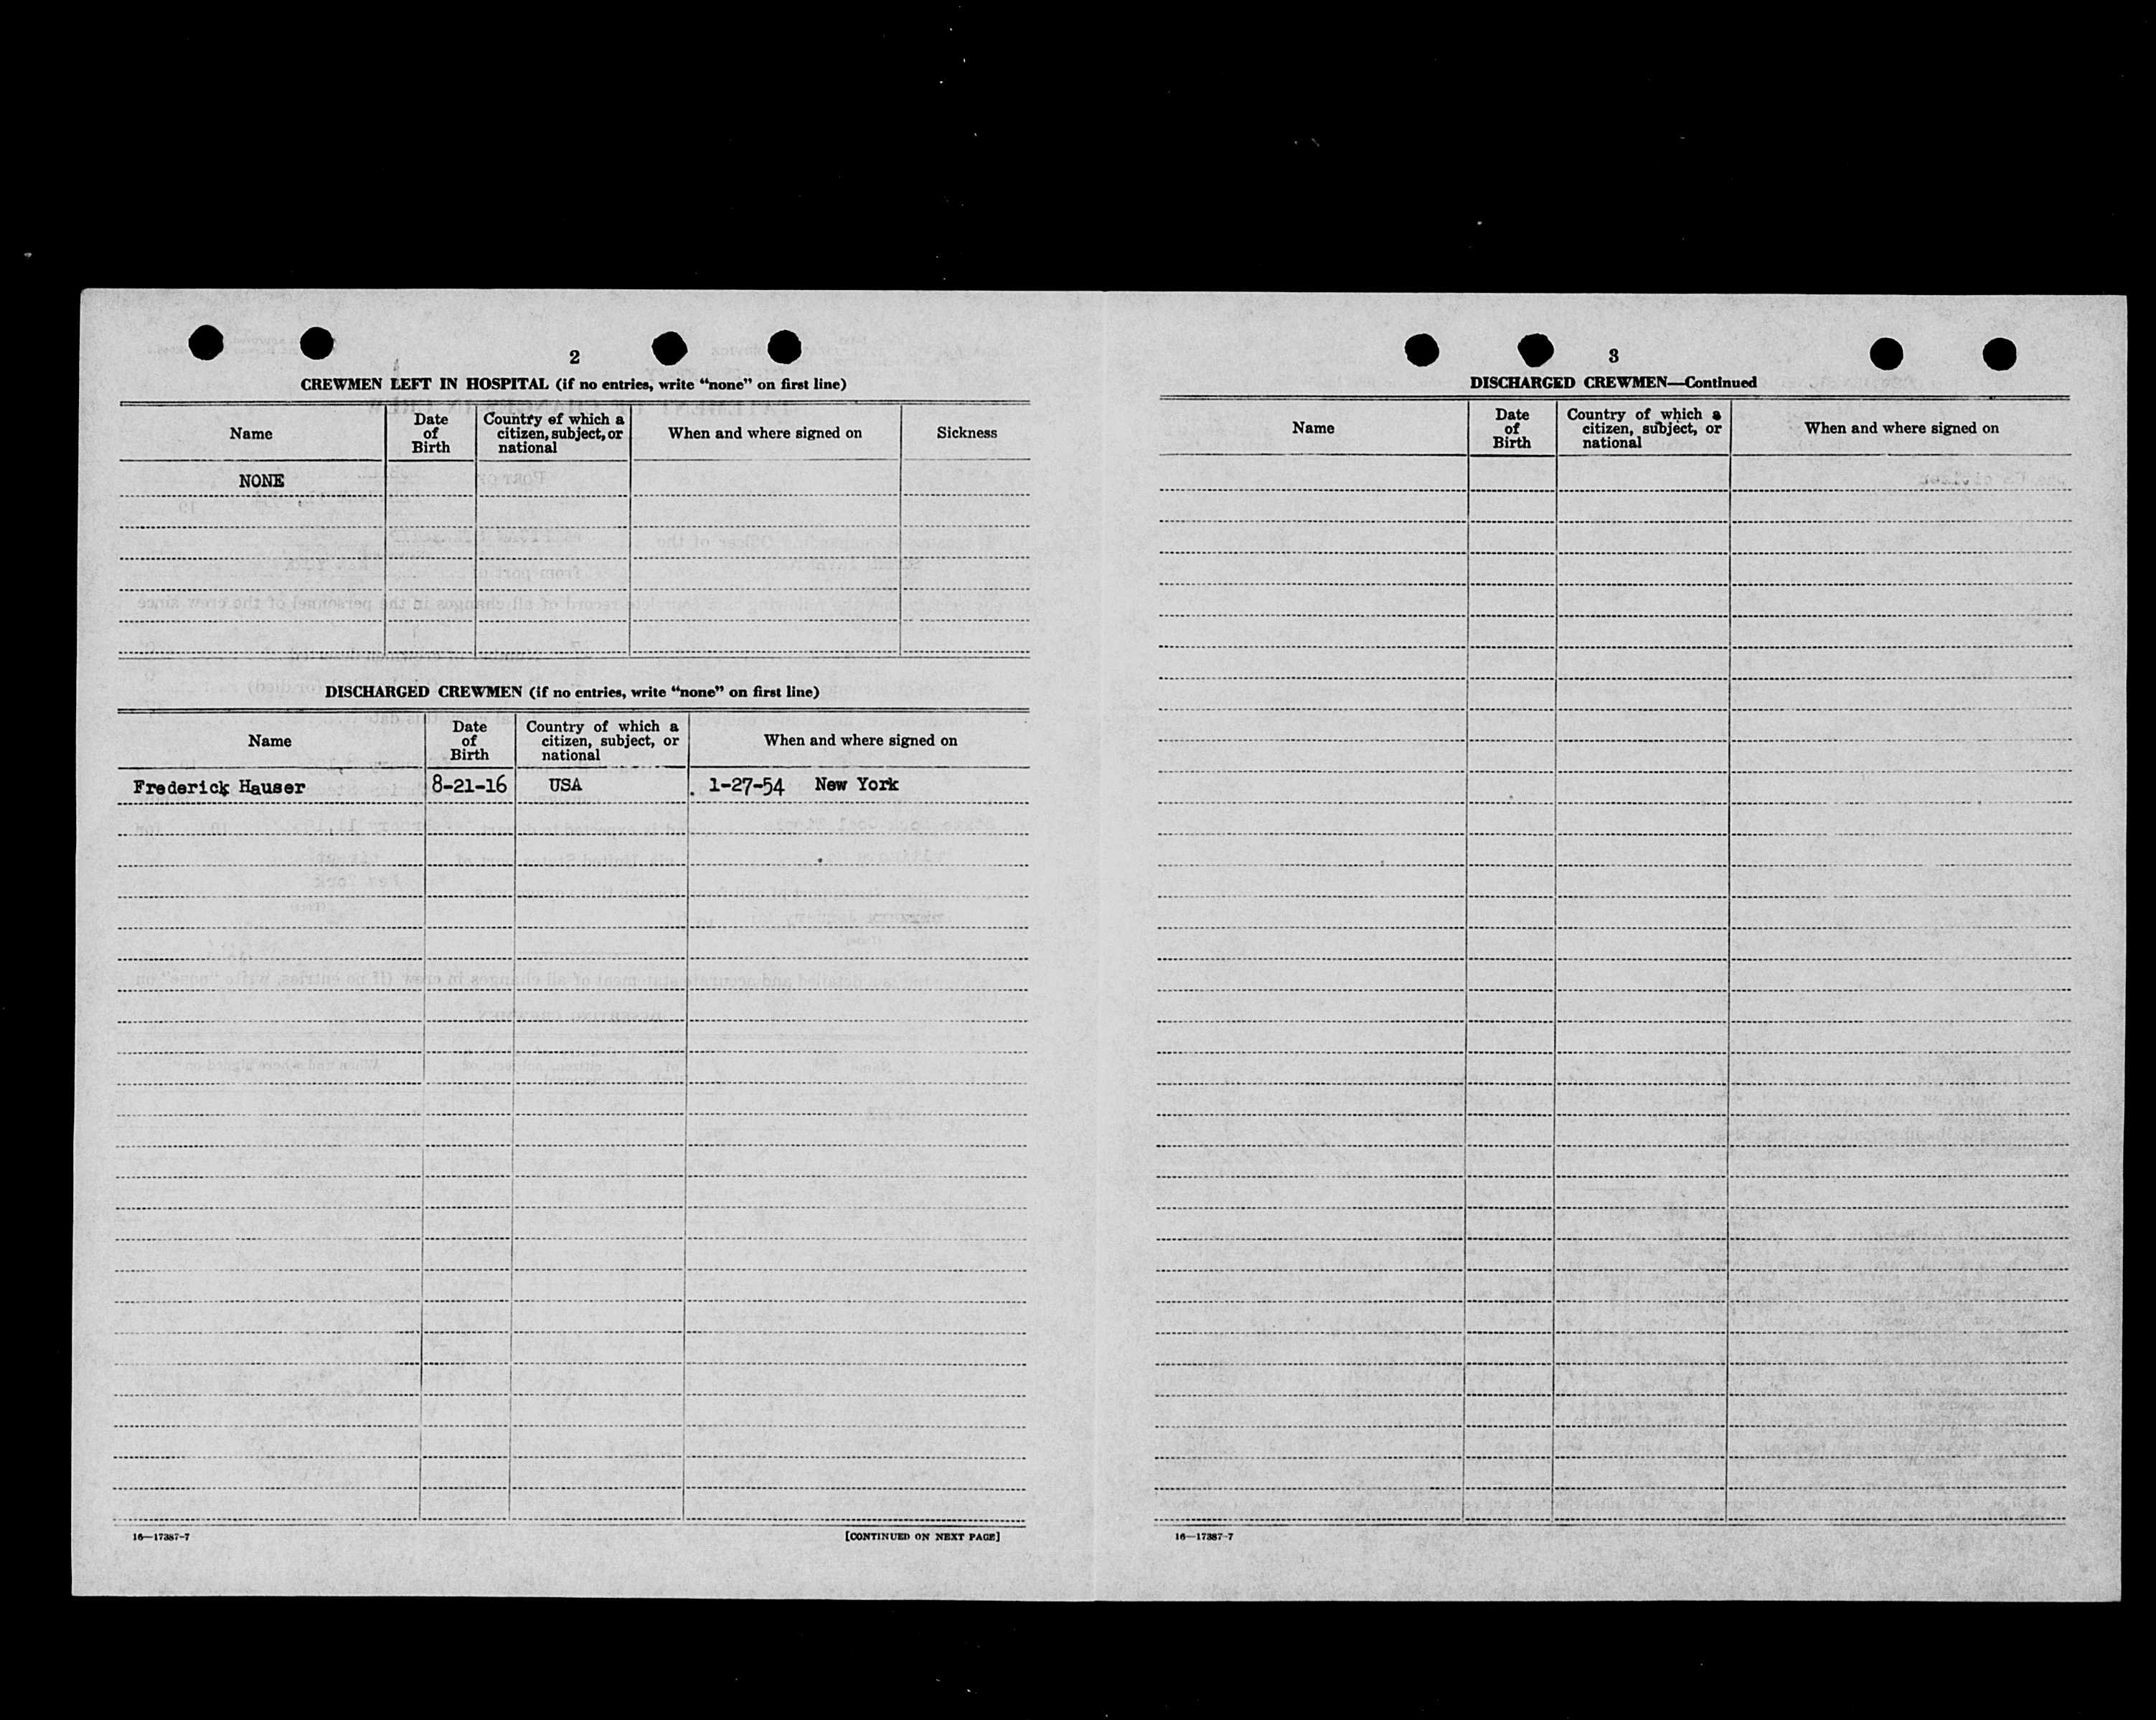 2
CREWMEN LEFT IN HOSPITAL (if no entries, write “none” on first line)
Name
Date of Birth
Country of which a citizen, subject, or national
When and where signed on
Sickness
NONE
DISCHARGED CREWMEN (if no entries, write “none” on first line)
Name
Date of Birth
Country of which a citizen, subject, or national
When and where signed on
Frederick Hauser 8-21-16 USA 1-27-54 New York
16—17387-7
[CONTINUED ON NEXT PAGE]
3
DISCHARGED CREWMEN—Continued
Name
Date of Birth
Country of which a citizen, subject, or national
When and where signed on
16—17387-7